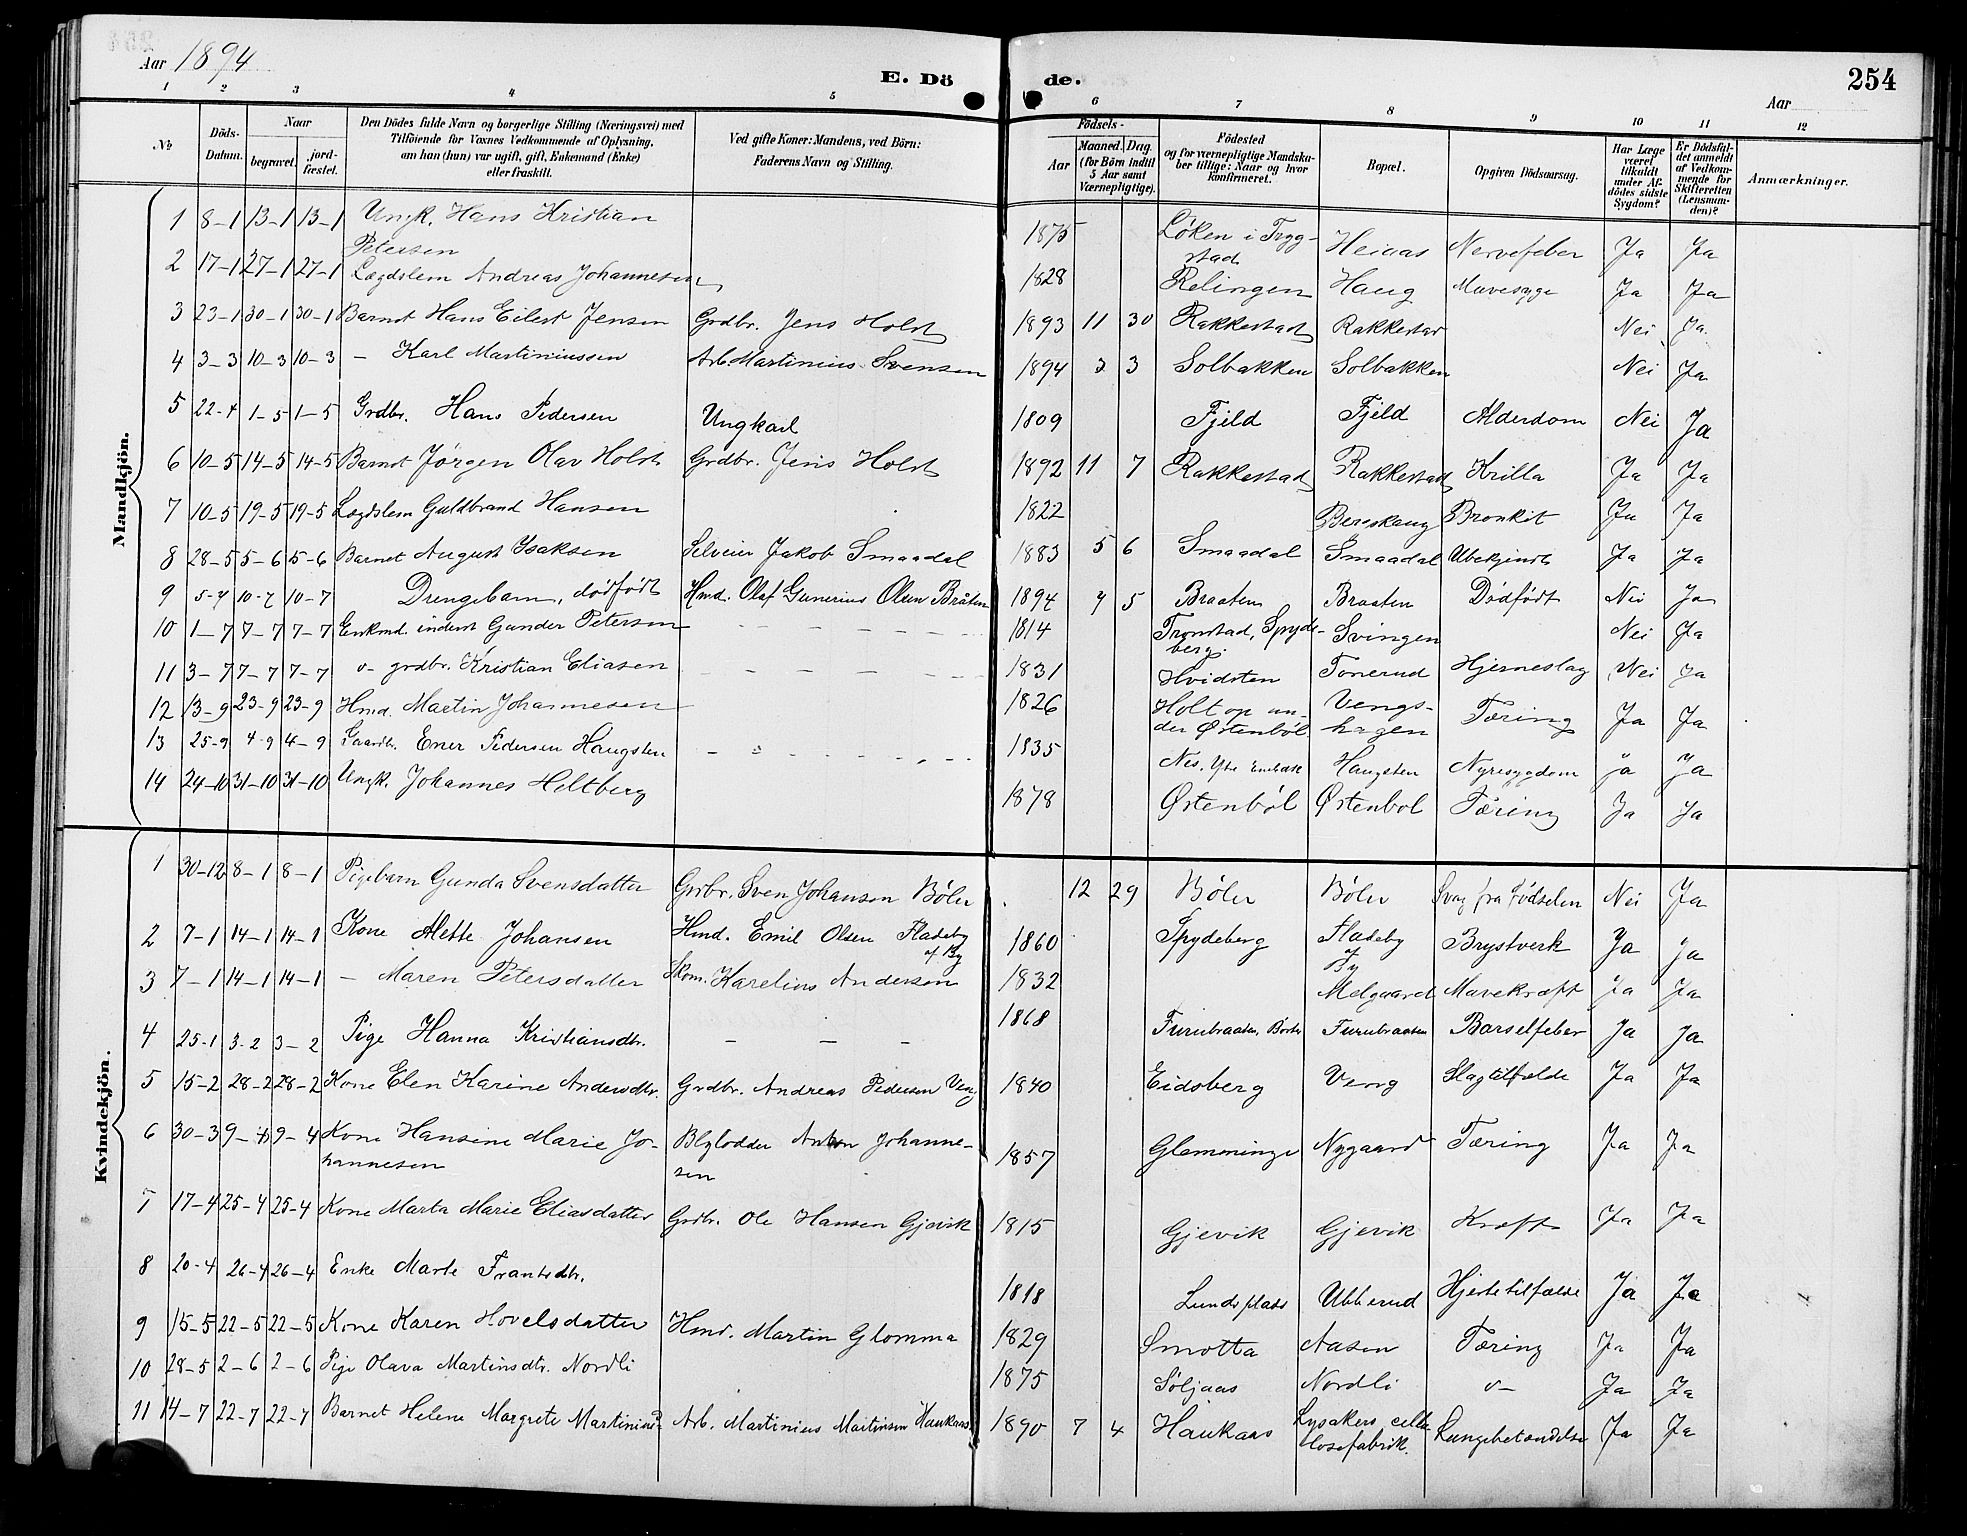 254
Aar 1894
E. Döde.
Aar
1 2 3 4 5 6 7 8 9 10 11 12
№
Döds-Datum.
Naar
begravet.
jord-fæstet.
Den Dödes fulde Navn og borgerlige Stilling (Næringsvei) med
Tilföiende for Voxnes Vedkommende af Oplysning,
om han (hun) var ugift, gift, Enkemand (Enke)
eller fraskilt.
Ved gifte Koner: Mandens, ved Börn:
Faderens Navn og Stilling.
Födsels-
Aar
Maaned. Dag.
(for Börn indtil
5 Aar samt
Værnepligtige).
Födested
og for værnepligtige Mandska-
ber tillige: Naar og hvor
konfirmeret.
Bopæl.
Opgiven Dödsaarsag.
Har Læge
været
tilkaldt
under Af-
dödes sidste
Sygdom?
Er Dödsfal-
det anmeldt
af Vedkom-
mende for
Skifteretten
(Lensman-
den)?
Anmærkninger.
Mandkjön.
1 8-1 13-1 13-1 Ungk. Hans Kristian Petersen 1875 Løken i Trygstad Heiaas Nervefeber Ja Ja
2 17-1 27-1 27-1 Lægdslem Andreas Johannesen 1828 Relingen Haug Mavesyge Ja Ja
3 23-1 30-1 30-1 Barnet Hans Eilert Jensen Grdbr. Jens Holst 1893 11 30 Rakkestad Rakkestad Nei Ja
4 3-3 10-3 10-3 - Karl Martiniussen Arb. Martinius Svensen 1894 3 3 Solbakken Solbakken Nei Ja
5 22-4 1-5 1-5 Grdbr. Hans Pedersen Ungkarl 1809 Fjeld Fjeld Alderdom Nei Ja
6 10-5 14-5 14-5 Barnet Jørgen Olav Holst Grdbr. Jens Holst 1892 11 7 Rakkestad Rakkestad Krilla Ja Ja
7 10-5 19-5 19-5 Lægdslem Guldbrand Hansen 1822 Bereskaug Bronkit Ja Ja
8 28-5 5-6 5-6 Barnet August Isaksen Selveier Jakob Smaadal 1883 5 6 Smaadal Smaadal Ubekjendt Ja Ja
9 5-7 10-7 10-7 Drengebarn, dødfødt Hmd. Olaf Gunerius Olsen Bråten 1894 7 5 Braaten Braaten Dødfødt Nei Ja
10 1-7 7-7 7-7 Enkmd. inderst Gunder Petersen - - - 1814 Tronstad, Spydeberg. Svingen Nei Ja
11 3-7 7-7 7-7 v- grdbr. Kristian Eliasen - - - 1831 Hvidsten Tonerud Hjerneslag Nei Ja
12 13-9 23-9 23-9 Hmd. Martin Johannesen 1826 Holt op under Østenbøl Vengshagen Tæring Ja Ja
13 25-9 4-9 4-9 Gaardbr. Ener Pedersen Haugsten - - - 1835 Haugsten Nyresygdom Ja Ja
14 24-10 31-10 31-10 Ungk. Johannes Heltberg 1878 Østenbøl Østenbol Tæring Ja Ja
Kvindekjön.
1 30-12 8-1 8-1 Pigebarn Gunda Svensdatter Grdbr. Sven Johansen Bøler 12 29 Bøler Bøler Svag fra Fødselen Nei Ja
2 7-1 14-1 14-1 Kone Mette Johansen Hmd. Emil Olsen Fladeby af By 1860 Spydeberg Fladeby af By Brystverk Ja Ja
3 7-1 14-1 14-1 - Maren Petersdatter Skom. Karelius Andersen 1832 Melgaard Mavekræft Ja Ja
4 25-1 3-2 3-2 Pige Hanna Kristiansdtr. - - - 1868 Furubraaten Furubraaten Barselfeber Ja Ja
5 15-2 28-2 28-2 Kone Elen Karine Andersdtr. Grdbr. Andreas Pedersen Veng 1840 Eidsberg Veng Slagtilfælde Ja Ja
6 30-3 9-4 9-4 Kone Hansine Marie Johannesen Blylodder Anton Johannesen 1857 Glemminge Nygaard Tæring Ja Ja
7 17-4 25-4 25-4 Kone Marta Marie Eliasdatter Grdbr. Ole Hansen Gjevik 1815 Gjevik Gjevik Kræft Ja Ja
8 20-4 26-4 26-4 Enke Marte Frantsdtr. 1818 Lundsplads Ubberud Hjertetilfælde Ja Ja
9 15-5 22-5 22-5 Kone Karen Hovelsdatter Hmd. Martin Glomma 1829 Smotta Aasen Tæring Ja Ja
10 28-5 2-6 2-6 Pige Olava Martinsdtr. Nordli 1875 Søljaas Nordli v- Ja Ja
11 14-7 22-7 22-7 Barnet Helene Margrete Martinius Arb. Martinius Martinsen Haukaas 1890 7 4 Haukaas Lysakers cellulosefabrik. Lungebetændelse Ja Ja